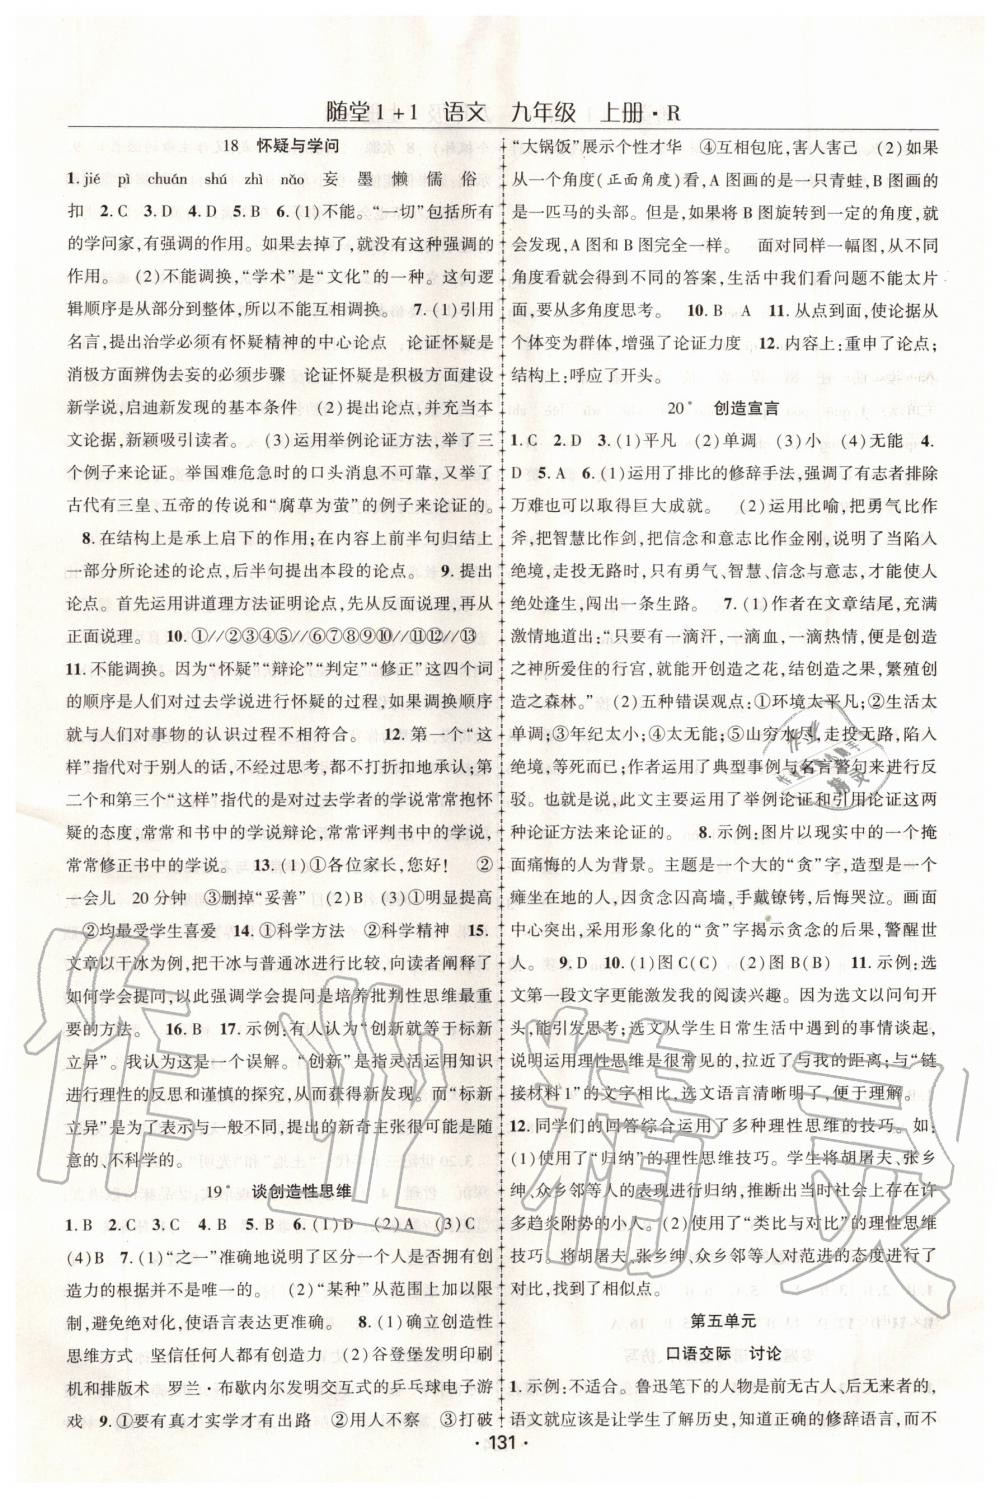 随堂1+1 语文 九年级 上册·R
18 怀疑与学问
1. jié pì chuán shú zhì nǎo 妄 墨 懒 儒 俗
扣 2. C 3. D 4. D 5. B 6. (1)不能。“一切”包括所有
的学问家,有强调的作用。如果去掉了,就没有这种强调的
作用。 (2)不能调换,“学术”是“文化”的一种。这句逻
辑顺序是从部分到整体,所以不能互相调换。 7. (1)引用
名言,提出治学必须有怀疑精神的中心论点 论证怀疑是
消极方面辨伪去妄的必须步骤 论证怀疑是积极方面建设
新学说,启迪新发现的基本条件 (2)提出论点,并充当本
文论据,新颖吸引读者。 (3)运用举例论证方法,举了三
个例子来论证。举国难危急时的口头消息不可靠,又举了
古代有三皇、五帝的传说和“腐草为萤”的例子来论证的。
8. 在结构上是承上启下的作用;在内容上前半句归结上
一部分所论述的论点,后半句提出本段的论点。 9. 提出
论点。首先运用讲道理方法证明论点,先从反面说理,再从
正面说理。 10. ①//②③④⑤//⑥⑦⑧⑨⑩⑪⑫//⑬
11. 不能调换。因为“怀疑”“辩论”“判定”“修正”这四个词
的顺序是人们对过去学说进行怀疑的过程,如果调换顺序
就与人们对事物的认识过程不相符合。 12. 第一个“这
样”指代对于别人的话,不经过思考,都不打折扣的承认;第
二个和第三个“这样”指代的是过去学者的学说常常抱怀
疑的态度,常常和书中的学说辩论,常常评判书中的学说,
常常修正书中的学说。 13. (1)①各位家长,您好! ②
一会儿 20分钟 ③删掉“妥善” (2)B (3)①明显提高
②均最受学生喜爱 14. ①科学方法 ②科学精神 15.
文章以干冰为例,把干冰与普通冰进行比较,向读者阐释了
如何学会提问,以此强调学会提问是培养批判性思维最重
要的方法。 16. B 17. 示例:有人认为“创新就等于标新
立异”。我认为这是一个误解。“创新”是指灵活运用知识
进行理性的反思和谨慎的探究,从而获得新发现。而“标新
立异”是为了表示与一般不同,提出的新奇主张很可能是随
意的、不科学的。
19* 谈创造性思维
1. B 2. C 3. C 4. B 5. B 6. (1)D (2)A (3)C
(4)B 7. (1)“之一”准确地说明了区分一个人是否拥有创
造力的根据并不是唯一的。 (2)“某种”从范围上加以限
制,避免绝对化,使语言表达更准确。 8. (1)确立创造性
思维方式 坚信任何人都有创造力 (2)谷登堡发明印刷
机和排版术 罗兰·布歇内尔发明交互式的乒乓球电子游
戏 9. ①要有真才实学才有出路 ②用人不察 ③打破
“大锅饭”展示个性才华 ④互相包庇,害人害己 (2)如果
从一个角度(正面角度)看,A图画的是一只青蛙,B图画的
是一匹马的头部。但是,如果将B图旋转到一定的角度,就
会发现,A图和B图完全一样。 面对同样一幅图,从不同
角度看就会得到不同的答案,生活中我们看问题不能太片
面,要从多角度思考。 10. B A 11. 从点到面,使论据从
个体变为群体,增强了论证力度 12. 内容上:重申了论点;
结构上:呼应了开头。
20* 创造宣言
1. C 2. D 3. (1)平凡 (2)单调 (3)小 (4)无能 4.
D 5. A 6. (1)运用了排比的修辞手法,强调了有志者排除
万难也可以取得巨大成就。 (2)运用比喻,把勇气比作
斧,把智慧比作剑,把信念与意志比作金刚,说明了当陷入
绝境,走投无路时,只有勇气、智慧、信念与意志,才能使人
绝处逢生,闯出一条生路。 7. (1)作者在文章结尾,充满
激情地道出:“只要有一滴汗,一滴血,一滴热情,便是创造
之神所爱住的行宫,就能开创造之花,结创造之果,繁殖创
造之森林。” (2)五种错误观点:①环境太平凡;②生活太
单调;③年纪太小;④太无能;⑤山穷水尽,走投无路,陷入
绝境,等死而已;作者运用了典型事例与名言警句来进行反
驳。也就是说,此文主要运用了举例论证和引用论证这两
种论证方法来论证的。 8. 示例:图片以现实中的一个掩
面痛悔的人为背景。主题是一个大的“贪”字,造型是一个
瘫坐在地的人,因贪念囚月高墙,手戴镣铐,后悔哭泣。画面
中心突出,采用形象化的“贪”字揭示贪的后果,警醒世
人。 9. D 10. (1)图C(C) (2)图B(B) 11. 示例:选
文第一段文字更能激发我的阅读兴趣。因为选文以问句开
头,能引发思考;选文从学生日常生活中遇到的事情谈起,
说明运用理性思维是很常见的,拉近了与我的距离;与“链
接材料1”的文字相比,选文语言清晰明了,便于理解。
12. 同学们的回答综合运用了多种理性思维的技巧。如:
(1)使用了“归纳”的理性思维技巧。学生将胡屠夫、张乡
绅、众乡邻等人的表现进行归纳,推断出当时社会上存在许
多趋炎附势的小人。(2)使用了“类比与对比”的理性思维
技巧。将胡屠夫、张乡绅、众乡邻对范进的态度进行了
对比,找到了相似点。
第五单元
口语交际 讨论
1. 示例:不适合。鲁迅笔下的人物是前无古人、后无来者的,
语文就应该是让学生了解历史,知道正确的修辞语言,而不
·131·
作业精灵